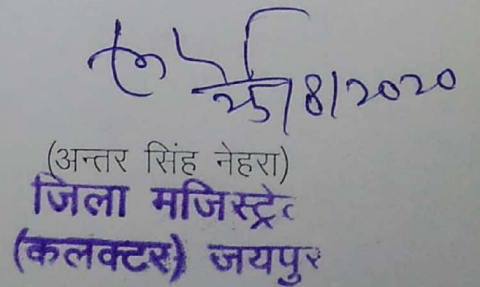 25/8/2020
(अन्तर सिंह नेहरा)
जिला मजिस्ट्रेट
(कलक्टर) जयपुर